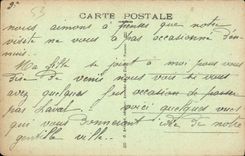 2°
CARTE POSTALE
nous aimons à penser que notre
visite ne vous a pas occasionné d'en-
nuis.
Ma fille se joint à moi pour vous
dire de venir nous voir si vous
avez quelques fois occasion de passer
par Laval. voici quelques vues
qui vous donneront idée de notre
gentille ville.